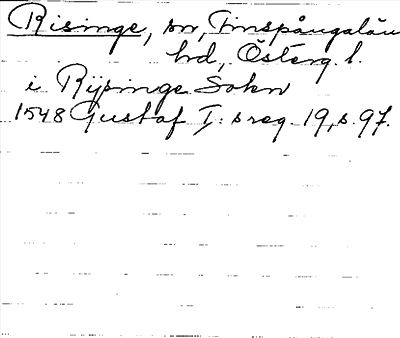 Risinge, sn, Finspångalän
hd, Österg. l.
i Rijsinge Sokn
1548 Gustaf I: s reg. 19, s. 97.